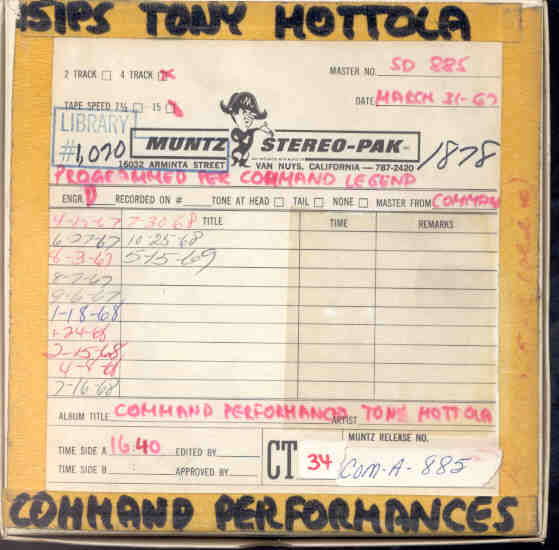 15IPS TONY MOTTOLA
2 TRACK 4 TRACK
MASTER NO. SD 885
DATE MARCH 31-67
TAPE SPEED 7½ 15
LIBRARY
#1,070
MUNTZ STEREO-PAK
1878
16032 ARMINTA STREET VAN NUYS, CALIFORNIA — 787-2420
PROGRAMMED PER COMMAND LEGEND
ENGR. D RECORDED ON # TONE AT HEAD TAIL NONE MASTER FROM COMMAND
4-15-67 7-30-68 TITLE TIME REMARKS
6-27-67 10-25-68
8-3-67 5-15-69
8-7-67
9-6-67
1-18-68
1-24-68
2-15-68
4-5-68
7-16-68
ALBUM TITLE COMMAND PERFORMANCE ARTIST TONY MOTTOLA
MUNTZ RELEASE NO.
TIME SIDE A 16:40 EDITED BY
CT 34 COM-A-885
TIME SIDE B APPROVED BY
COMMAND PERFORMANCES